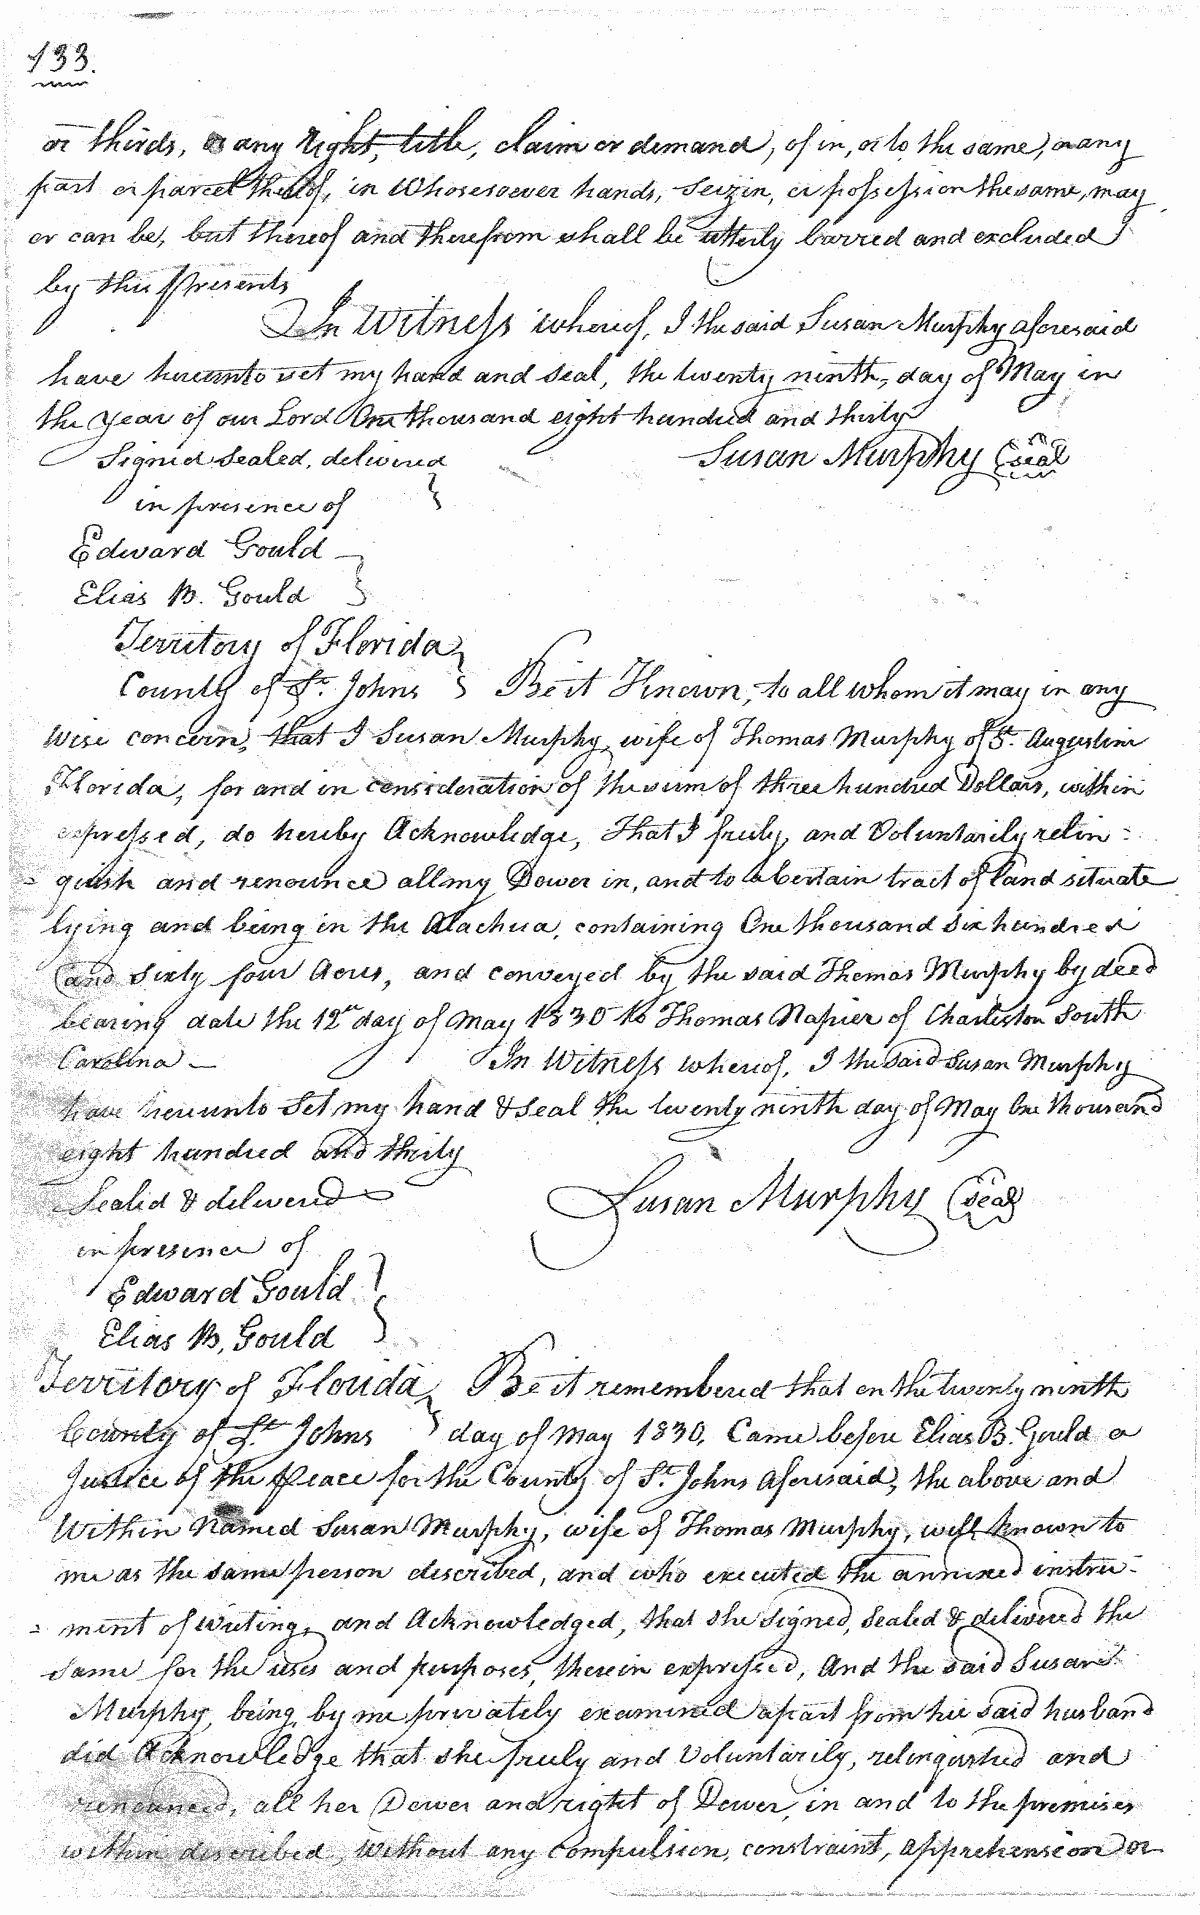 133.
or thirds, or any right, title, claim or demand, of in, or to, the same, or any
part or parcel thereof, in Whosesoever hands, Seizin, or possession the same, may
or can be, but thereof and therefrom shall be utterly barred and excluded
by these Presents
In Witness whereof, I the said Susan Murphy aforesaid
have hereunto set my hand and seal, the twenty ninth, day of May in
the Year of our Lord One thousand eight hundred and thirty
Signed Sealed, delivered
Susan Murphy (seal)
in presence of
Edward Gould
Elias B. Gould
Territory of Florida
County of St. Johns Be it Known, to all whom it may in any
Wise concern, that I Susan Murphy, wife of Thomas Murphy of St. Augustine
Florida, for and in consideration of the sum of three hundred Dollars, within
expressed, do hereby Acknowledge, That I freely, and Voluntarily relin=
=quish and renounce all my Dower in, and to a Certain tract of land situate
lying and being in the Alachua, containing One thousand Six hundred
and Sixty four Acres, and conveyed by the said Thomas Murphy by deed
bearing date the 12th day of May 1830 to Thomas Napier of Charleston South
Carolina — In Witness whereof, I the said Susan Murphy
have hereunto Set my hand & Seal the twenty ninth day of May One thousand
eight hundred and thirty
Sealed & delivered
Susan Murphy (seal)
in presence of
Edward Gould
Elias B. Gould
Territory of Florida Be it remembered that on the twenty ninth
County of St. Johns day of May 1830, Came before Elias B. Gould a
Justice of the Peace for the County of St. Johns Aforesaid, the above and
Within Named Susan Murphy, wife of Thomas Murphy, well known to
me as the same person described, and who executed the annexed instru=
=ment of writing, and Acknowledged, that she signed, Sealed & delivered the
same for the uses and purposes, therein expressed, And the said Susan
Murphy, being by me privately examined apart from her said husband
did Acknowledge that she freely and Voluntarily, relinquished and
renounced, all her Dower and right of Dower, in and to the premises
within described, Without any Compulsion, constraint, apprehension or